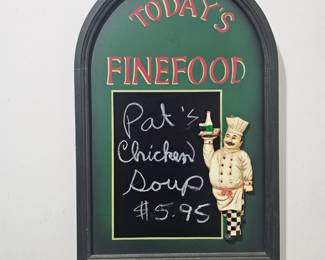 TODAY'S
FINEFOOD
Pat's
Chicken
Soup
$5.95